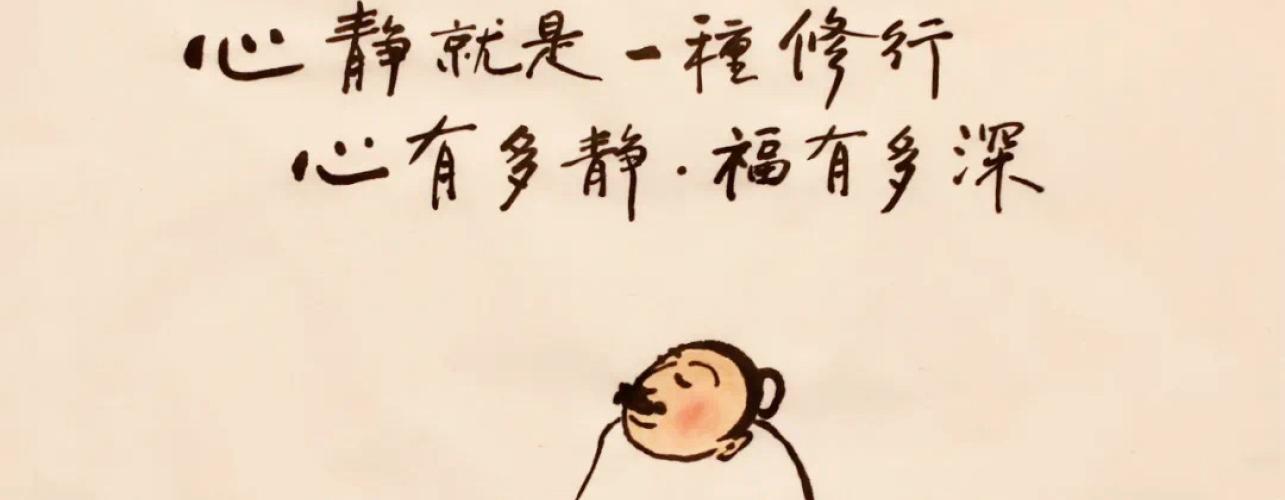 心靜就是一種修行
心有多靜·福有多深